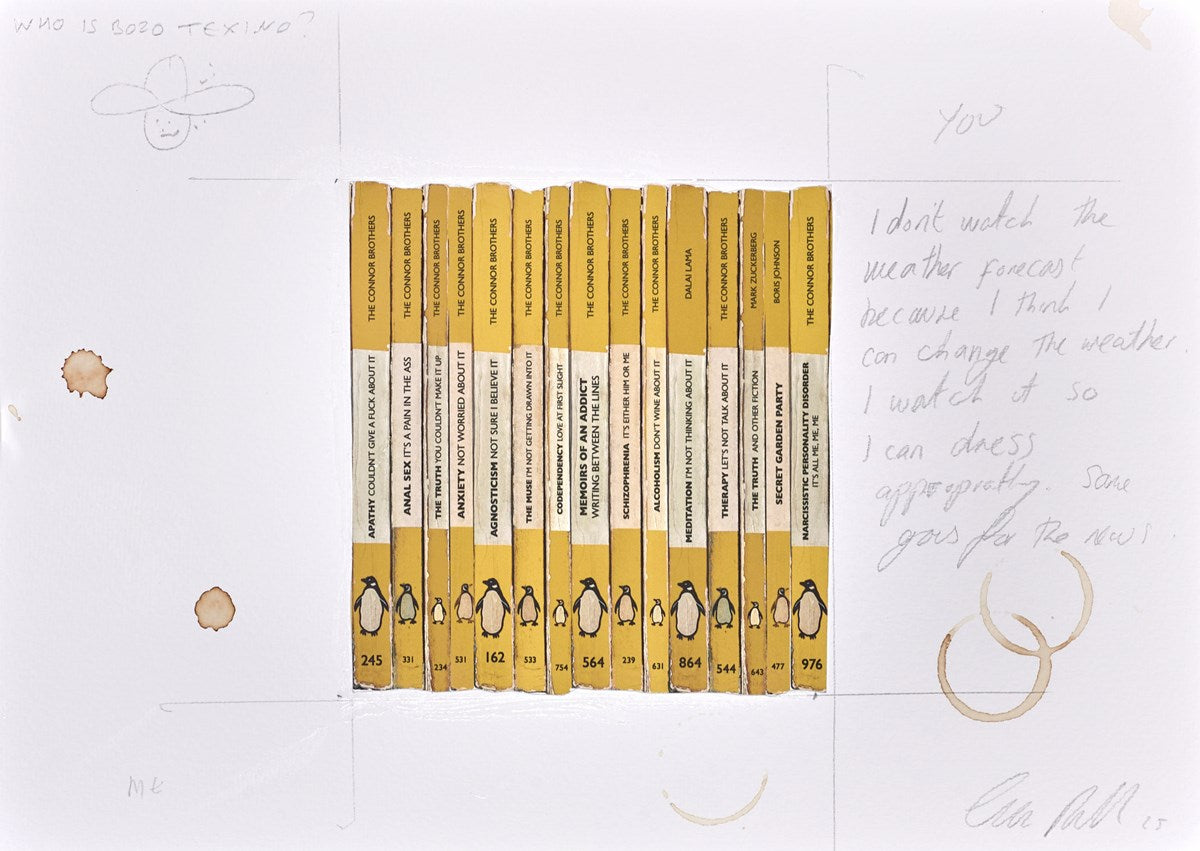 WHO IS BOZO TEXINO?
YOU
I don't watch the
weather forecast
because I think I
can change the weather.
I watch it so
I can dress
appropriatly. Same
goes for the news.
THE CONNOR BROTHERS
APATHY COULDN'T GIVE A FUCK ABOUT IT
245
THE CONNOR BROTHERS
ANAL SEX IT'S A PAIN IN THE ASS
331
THE CONNOR BROTHERS
THE TRUTH YOU COULDN'T MAKE IT UP
234
THE CONNOR BROTHERS
ANXIETY NOT WORRIED ABOUT IT
531
THE CONNOR BROTHERS
AGNOSTICISM NOT SURE I BELIEVE IT
162
THE CONNOR BROTHERS
THE MUSE I'M NOT GETTING DRAWN INTO IT
533
THE CONNOR BROTHERS
CODEPENDENCY LOVE AT FIRST SLIGHT
754
THE CONNOR BROTHERS
MEMOIRS OF AN ADDICT
WRITING BETWEEN THE LINES
564
THE CONNOR BROTHERS
SCHIZOPHRENIA IT'S EITHER HIM OR ME
239
THE CONNOR BROTHERS
ALCOHOLISM DON'T WINE ABOUT IT
631
DALAI LAMA
MEDITATION I'M NOT THINKING ABOUT IT
864
THE CONNOR BROTHERS
THERAPY LET'S NOT TALK ABOUT IT
544
MARK ZUCKERBERG
THE TRUTH AND OTHER FICTION
643
BORIS JOHNSON
SECRET GARDEN PARTY
477
THE CONNOR BROTHERS
NARCISSISTIC PERSONALITY DISORDER
IT'S ALL ME, ME, ME
976
ME